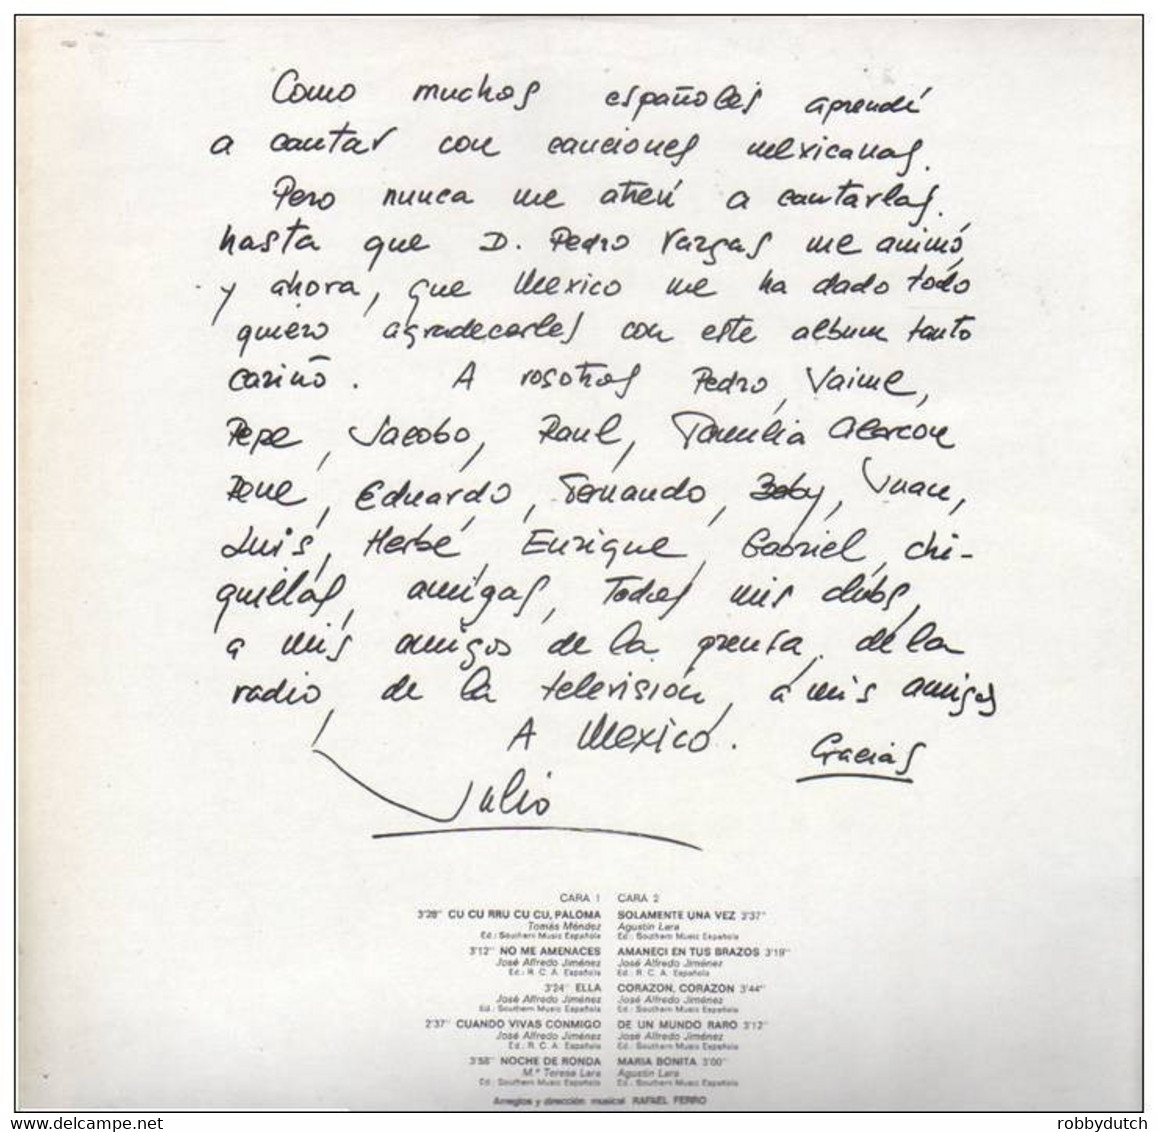 Como muchos españoles aprendí
a cantar con canciones mexicanas.
Pero nunca me atreví a cantarlas.
hasta que D. Pedro Vargas me animó
y ahora, que Mexico me ha dado todo
quiero agradecerles con este album tanto
cariño. A vosotros Pedro, Jaime,
Pepe, Jacobo, Raul, Familia Alarcon
Rene, Eduardo, Fernando, Boby, Juan,
Luis, Herbé, Enrique, Gabriel, chi-
quillas, amigas, Todos mis clubs,
a mis amigos de la prensa, de la
radio, de la televisión, a mis amigos
A Mexico. Gracias
Julio
CARA 1 CARA 2
3'28" CU CU RRU CU CU, PALOMA
Tomás Méndez
Ed.: Southern Music Española
3'12" NO ME AMENACES
José Alfredo Jiménez
Ed.: R. C. A. Española
3'24" ELLA
José Alfredo Jiménez
Ed.: Southern Music Española
2'37" CUANDO VIVAS CONMIGO
José Alfredo Jiménez
Ed.: R. C. A. Española
3'58" NOCHE DE RONDA
M.ª Teresa Lara
Ed.: Southern Music Española
SOLAMENTE UNA VEZ 3'37"
Agustin Lara
Ed.: Southern Music Española
AMANECI EN TUS BRAZOS 3'19"
José Alfredo Jiménez
Ed.: R. C. A. Española
CORAZON, CORAZON 3'44"
José Alfredo Jiménez
Ed.: Southern Music Española
DE UN MUNDO RARO 3'12"
José Alfredo Jiménez
Ed.: Southern Music Española
MARIA BONITA 3'00"
Agustin Lara
Ed.: Southern Music Española
Arreglos y dirección musical RAFAEL FERRO
robbydutch